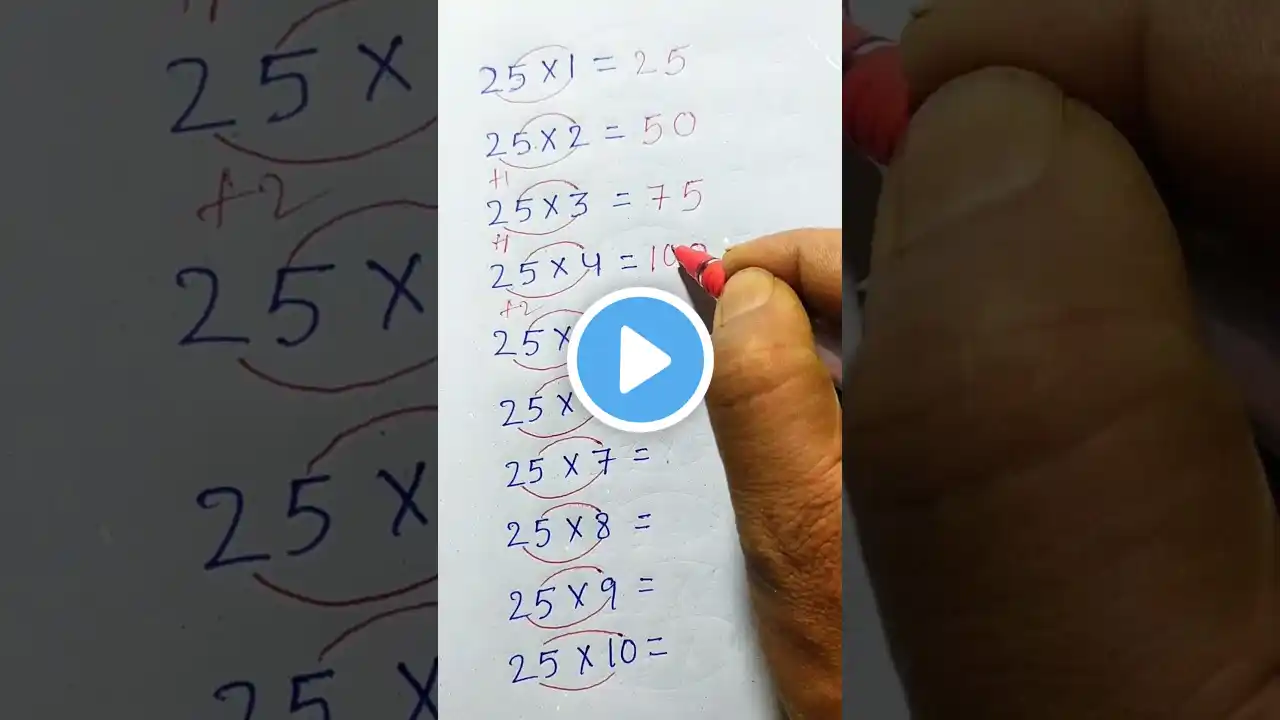 25 × 1 = 25
25 × 2 = 50
+1
25 × 3 = 75
+1
25 × 4 = 100
+2
25 ×
25 ×
25 × 7 =
25 × 8 =
25 × 9 =
25 × 10 =